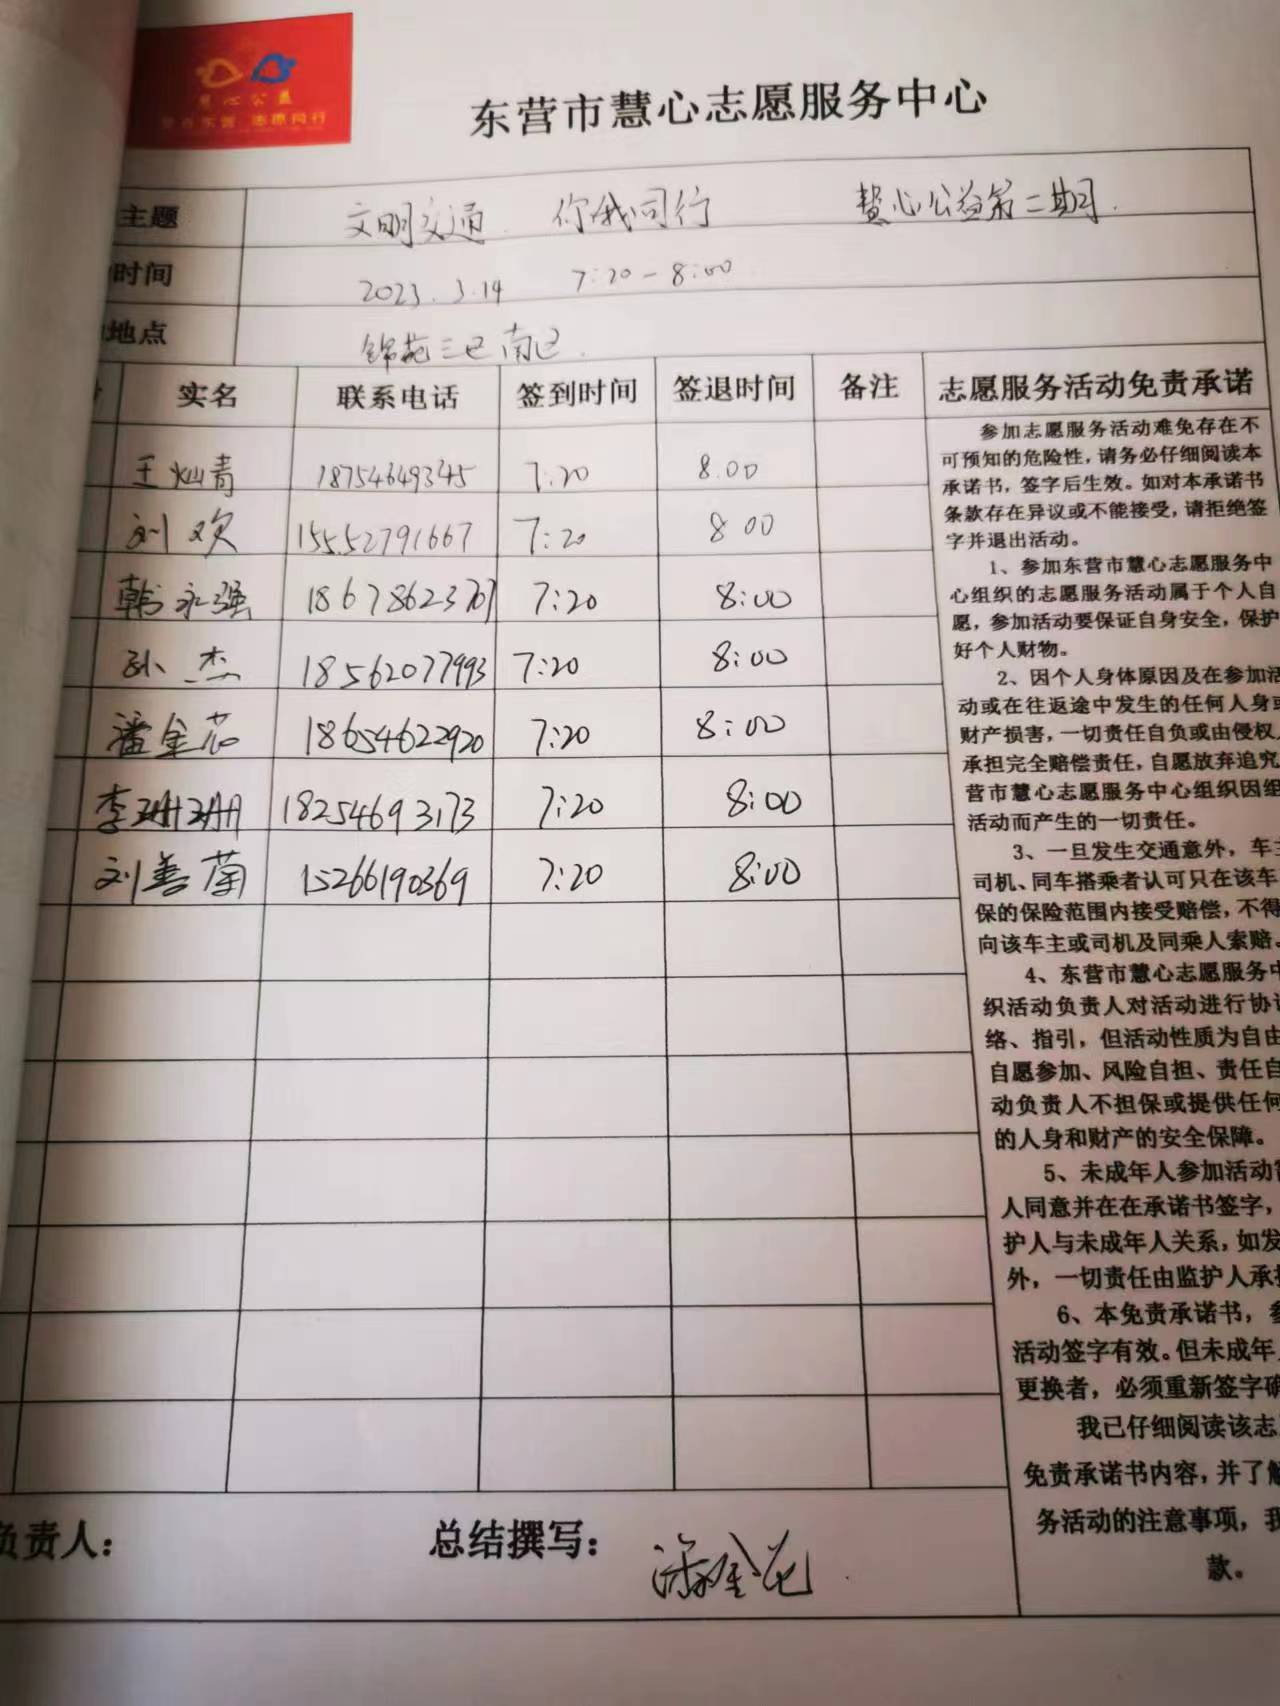 慧心公益
志愿同行
东营市慧心志愿服务中心
主题 文明交通 你我同行 慧心公益第二期
时间 2023.3.14 7:20-8:00
地点 锦苑三区南区
实名 联系电话 签到时间 签退时间 备注 志愿服务活动免责承诺
王灿青 18754649345 7:20 8.00
刘欢 15552791667 7:20 8 00
韩永强 18678623701 7:20 8:00
孙杰 18562077993 7:20 8:00
潘金芯 18654622920 7:20 8:00
李珊珊 18254693173 7:20 8:00
刘善菊 15266190369 7:20 8:00
参加志愿服务活动难免存在不
可预知的危险性，请务必仔细阅读本
承诺书，签字后生效。如对本承诺书
条款存在异议或不能接受，请拒绝签
字并退出活动。
1、参加东营市慧心志愿服务中
心组织的志愿服务活动属于个人自
愿，参加活动要保证自身安全，保护
好个人财物。
2、因个人身体原因及在参加活
动或在往返途中发生的任何人身或
财产损害，一切责任自负或由侵权
承担完全赔偿责任，自愿放弃追究
营市慧心志愿服务中心组织因组
活动而产生的一切责任。
3、一旦发生交通意外，车主
司机、同车搭乘者认可只在该车
保的保险范围内接受赔偿，不得
向该车主或司机及同乘人索赔。
4、东营市慧心志愿服务中
织活动负责人对活动进行协
络、指引，但活动性质为自由
自愿参加、风险自担、责任自
动负责人不担保或提供任何
的人身和财产的安全保障。
5、未成年人参加活动
人同意并在在承诺书签字，
护人与未成年人关系，如发
外，一切责任由监护人承担
6、本免责承诺书，参
活动签字有效。但未成年
更换者，必须重新签字确
我已仔细阅读该志
免责承诺书内容，并了解
务活动的注意事项，我
款。
负责人： 总结撰写： 潘金芯